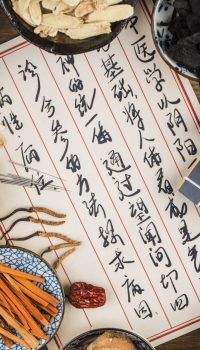 中医学以阴阳
基础,将人体看成是气
神的统一体,通过望闻问切四
诊合参的方法,探求病因、
性、病位